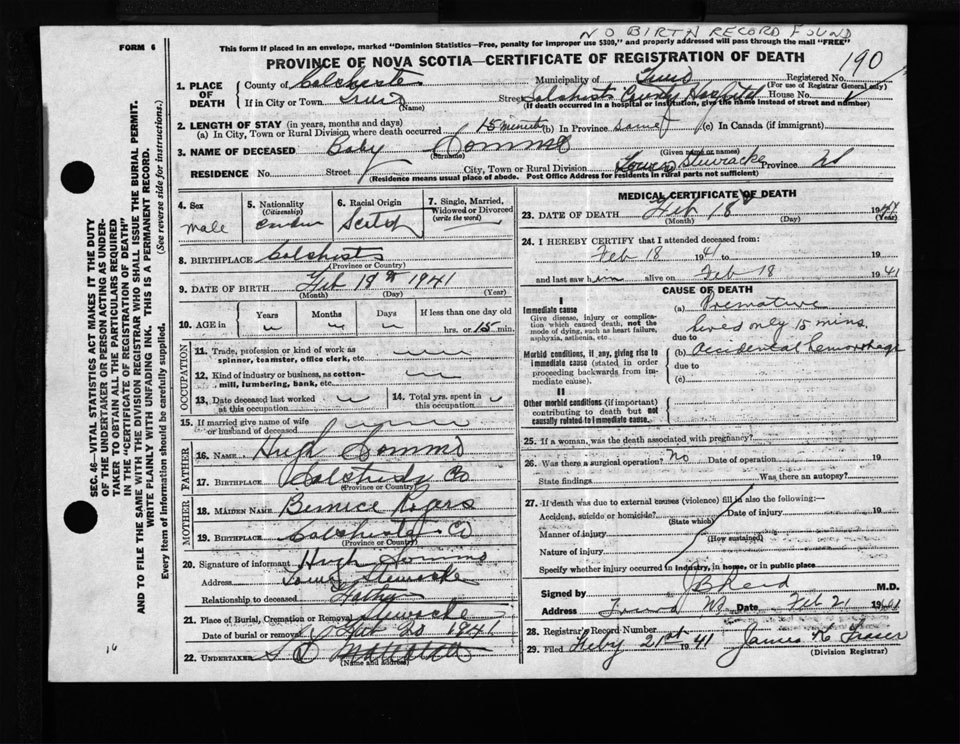 NO BIRTH RECORD FOUND
FORM 6
This form if placed in an envelope, marked "Dominion Statistics—Free, penalty for improper use $300," and properly addressed will pass through the mail "FREE"
PROVINCE OF NOVA SCOTIA—CERTIFICATE OF REGISTRATION OF DEATH
190
SEC. 46—VITAL STATISTICS ACT MAKES IT THE DUTY
OF THE UNDERTAKER OR PERSON ACTING AS UNDER-
TAKER TO OBTAIN ALL THE PARTICULARS REQUIRED
IN THE "CERTIFICATE OF REGISTRATION OF DEATH"
AND TO FILE THE SAME WITH THE DIVISION REGISTRAR WHO SHALL ISSUE THE BURIAL PERMIT.
WRITE PLAINLY WITH UNFADING INK. THIS IS A PERMANENT RECORD.
Every item of information should be carefully supplied. (See reverse side for instructions.)
1. PLACE OF DEATH
County of Colchester Municipality of Truro Registered No.
(For use of Registrar General only)
If in City or Town Truro (Name) Street Colchester County Hospital House No.
(If death occurred in a hospital or institution, give the name instead of street and number)
2. LENGTH OF STAY (in years, months and days)
(a) In City, Town or Rural Division where death occurred 15 minutes (b) In Province same (c) In Canada (if immigrant)
3. NAME OF DECEASED Baby
(Surname) (Given name or names)
RESIDENCE No. Street City, Town or Rural Division Lower Stewiacke Province NS
(Residence means usual place of abode. Post Office Address for residents in rural parts not sufficient)
4. Sex
male
5. Nationality
(Citizenship)
6. Racial Origin
Scotch
7. Single, Married,
Widowed or Divorced
(write the word)
8. BIRTHPLACE Colchester
(Province or Country)
9. DATE OF BIRTH Feb 19th 1941
(Month) (Day) (Year)
10. AGE in
Years Months Days If less than one day
hrs. or 15 min.
OCCUPATION
11. Trade, profession or kind of work as
spinner, teamster, office clerk, etc.
12. Kind of industry or business, as cotton-
mill, lumbering, bank, etc.
13. Date deceased last worked
at this occupation
14. Total yrs. spent in
this occupation
15. If married give name of wife
or husband of deceased
FATHER
16. NAME Hugh
17. BIRTHPLACE Colchester Co
(Province or Country)
MOTHER
18. MAIDEN NAME Bernice Rogers
19. BIRTHPLACE Colchester Co
(Province or Country)
20. Signature of informant Hugh
Address Lower Stewiacke
Relationship to deceased Father
21. Place of Burial, Cremation or Removal Stewiacke
Date of burial or removal Feb 20 1941
22. UNDERTAKER
(Name and Address)
16
MEDICAL CERTIFICATE OF DEATH
23. DATE OF DEATH Feb 18 19
(Month) (Day) (Year)
24. I HEREBY CERTIFY that I attended deceased from:
Feb 18 1941 to 19
and last saw him alive on Feb 18 1941
CAUSE OF DEATH
I
Immediate cause
Give disease, injury or complica-
tion which caused death, not the
mode of dying, such as heart failure,
asphyxia, asthenia, etc.
(a) Premature
lived only 15 mins.
due to
Morbid conditions, if any, giving rise to
immediate cause (stated in order
proceeding backwards from im-
mediate cause).
(b) Accidental hemorrhage
due to
(c)
II
Other morbid conditions (if important)
contributing to death but not
causally related to immediate cause.
25. If a woman, was the death associated with pregnancy?
26. Was there a surgical operation? No Date of operation 19
State findings Was there an autopsy?
27. If death was due to external causes (violence) fill in also the following:—
Accident, suicide or homicide? Date of injury 19
(State which)
Manner of injury
(How sustained)
Nature of injury
Specify whether injury occurred in industry, in home, or in public place
Signed by M.D.
Address Truro NS Date Feb 21 1941
28. Registrar's Record Number
29. Filed Feby 21st 1941 James K. Fraser
(Division Registrar)